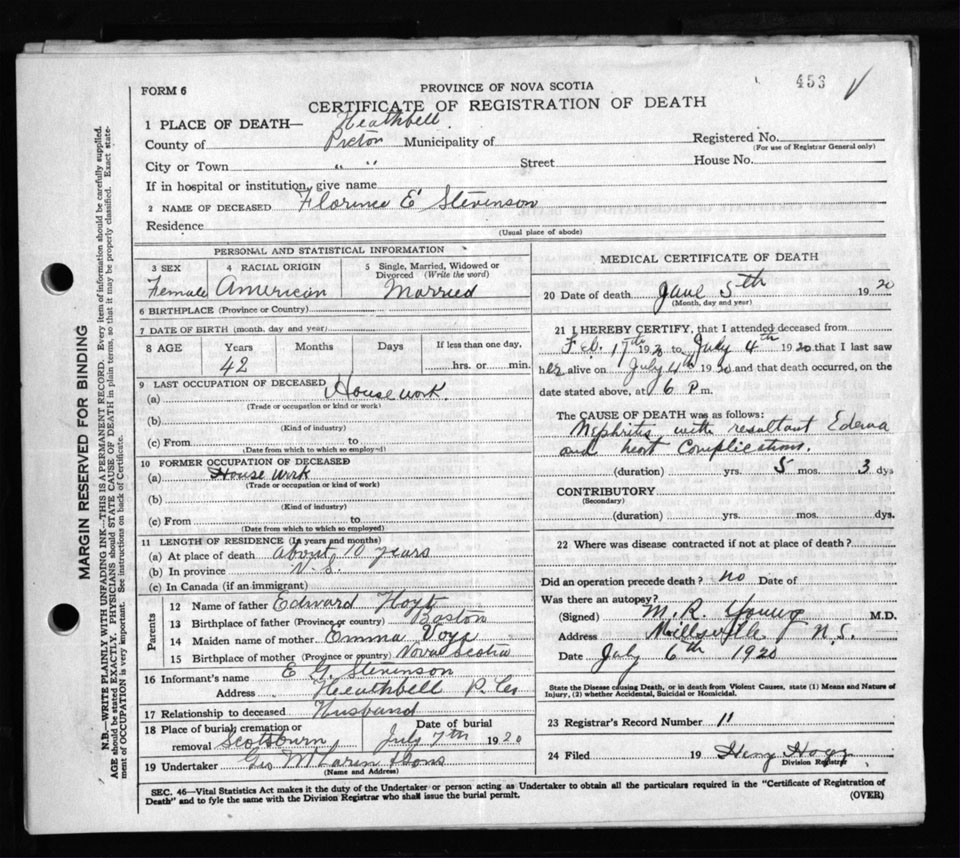 453
FORM 6
PROVINCE OF NOVA SCOTIA
CERTIFICATE OF REGISTRATION OF DEATH
1 PLACE OF DEATH— Heathbell.
County of Pictou Municipality of
Registered No.
(For use of Registrar General only)
City or Town " " Street House No.
If in hospital or institution, give name
2 NAME OF DECEASED Florence E Stevenson
Residence
(Usual place of abode)
PERSONAL AND STATISTICAL INFORMATION
3 SEX Female
4 RACIAL ORIGIN American
5 Single, Married, Widowed or Divorced (Write the word) Married
6 BIRTHPLACE (Province or Country)
7 DATE OF BIRTH (month, day and year)
8 AGE Years 42 Months Days If less than one day, hrs. or min.
9 LAST OCCUPATION OF DECEASED
(a) House work.
(Trade or occupation or kind or work)
(b)
(Kind of industry)
(c) From to
(Date from which to which so employed)
10 FORMER OCCUPATION OF DECEASED
(a) House work
(Trade or occupation or kind of work)
(b)
(Kind of industry)
(c) From to
(Date from which to which so employed)
11 LENGTH OF RESIDENCE (In years and months)
(a) At place of death about 10 years
(b) In province N. S.
(c) In Canada (if an immigrant)
Parents
12 Name of father Edward Hoyt
13 Birthplace of father (Province or country) Boston
14 Maiden name of mother Emma
15 Birthplace of mother (Province or country) Nova Scotia
16 Informant's name E G. Stevenson
Address Heathbell P. Co
17 Relationship to deceased Husband
18 Place of burial, cremation or removal Scotsburn
Date of burial July 7th 1920
19 Undertaker Geo McLaren & Sons
(Name and Address)
MEDICAL CERTIFICATE OF DEATH
20 Date of death 5th 1920
(Month, day and year)
21 I HEREBY CERTIFY, that I attended deceased from
Feb. 17th 1920 to July 4th 1920 that I last saw
her alive on July 4th 1920 and that death occurred, on the
date stated above, at 6 P m.
The CAUSE OF DEATH was as follows:
Nephritis with resultant Edema
and heart complications.
(duration) yrs. 5 mos. 3 dys
CONTRIBUTORY
(Secondary)
(duration) yrs. mos. dys.
22 Where was disease contracted if not at place of death?
Did an operation precede death? no Date of
Was there an autopsy?
(Signed) M. R. Young M.D.
Address Millsville N.S.
Date July 6th 1920
State the Disease causing Death, or in death from Violent Causes, state (1) Means and Nature of
Injury, (2) whether Accidental, Suicidal or Homicidal.
23 Registrar's Record Number 11
24 Filed 19 Henry
Division Registrar
SEC. 46—Vital Statistics Act makes it the duty of the Undertaker or person acting as Undertaker to obtain all the particulars required in the "Certificate of Registration of
Death" and to fyle the same with the Division Registrar who shall issue the burial permit.
(OVER)
MARGIN RESERVED FOR BINDING
N.B.—WRITE PLAINLY WITH UNFADING INK—THIS IS A PERMANENT RECORD. Every item of information should be carefully supplied.
AGE should be stated EXACTLY. PHYSICIANS should STATE CAUSE OF DEATH in plain terms, so that it may be properly classified. Exact state-
ment of OCCUPATION is very important. See instructions on back of Certificate.